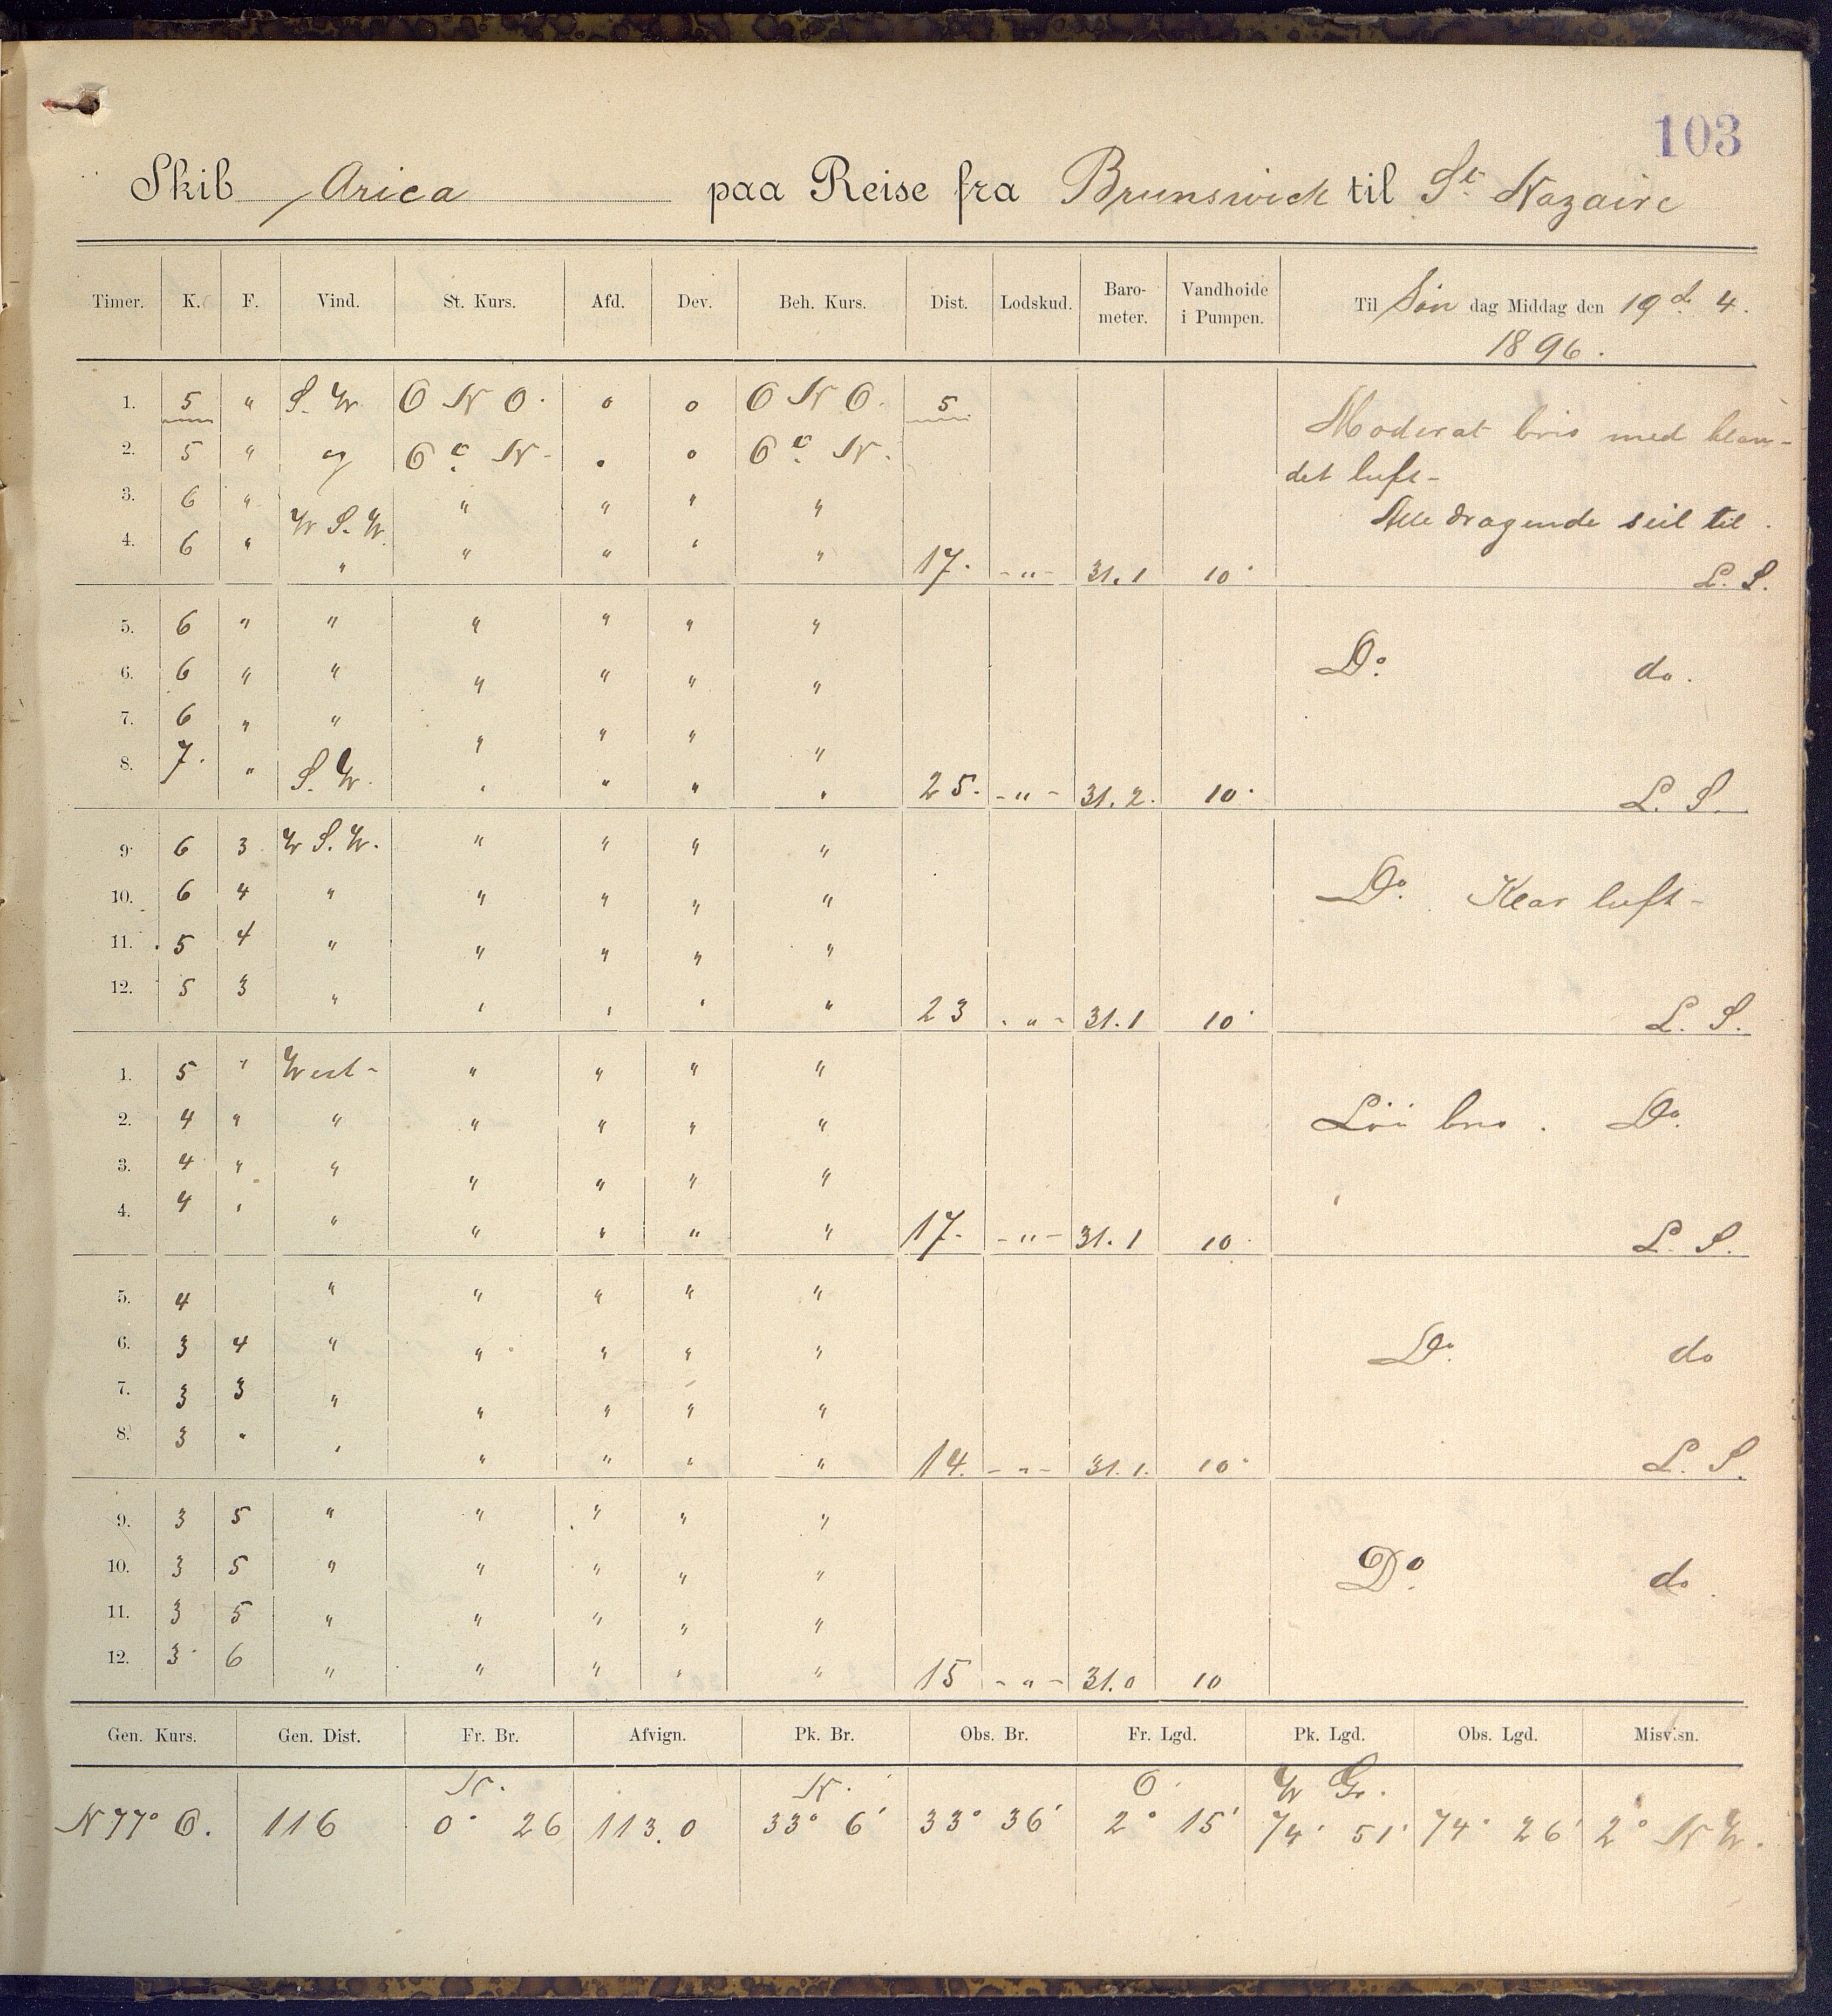 103
Skib Arica paa Reise fra Brunswick til St Nazaire
Timer. K. F. Vind. St. Kurs. Afd. Dev. Beh. Kurs. Dist. Lodskud. Baro-meter. Vandhoide i Pumpen. Til Søn dag Middag den 19de 4.
1896.
1. 5 " S. W. O N O. 0 0 O N O. 5
Moderat bris med blan-
2. 5 " og O t. N - 0 0 O t. N.
det luft -
3. 6 " W S. W. " " " "
Alle dragende seil til.
4. 6 " " " " " " 17. - " - 31.1 10" L. S.
5. 6 " " " " " "
6. 6 " " " " " " Do. do.
7. 6 " " " " " "
8. 7. " S. W. " " " " 25. - " - 31.2. 10" L. S.
9. 6 3 W S. W. " " " "
10. 6 4 " " " " " Do. Klar luft -
11. 5 4 " " " " "
12. 5 3 " " " " " 23 - " - 31.1 10" L. S.
1. 5 " West - " " " "
2. 4 " " " " " " Löi bris. Do.
3. 4 " " " " " "
4. 4 " " " " " " 17. - " - 31.1 10 L. S.
5. 4 " " " " "
6. 3 4 " " " " " Do. do
7. 3 3 " " " " "
8. 3 " " " " " " 14. - " - 31.1. 10" L. S.
9. 3 5 " " " " "
10. 3 5 " " " " " Do. do.
11. 3 5 " " " " "
12. 3 6 " " " " " 15 - " - 31.0 10
Gen. Kurs. Gen. Dist. Fr. Br. Afvign. Pk. Br. Obs. Br. Fr. Lgd. Pk. Lgd. Obs. Lgd. Misvisn.
N. N. O. W Gr.
N 77° O. 116 0° 26 113.0 33° 6' 33° 36' 2° 15' 74° 51' 74° 26' 2° N W.